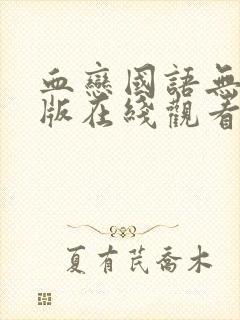 血戀國語無
版在綫觀看
夏有芃喬木